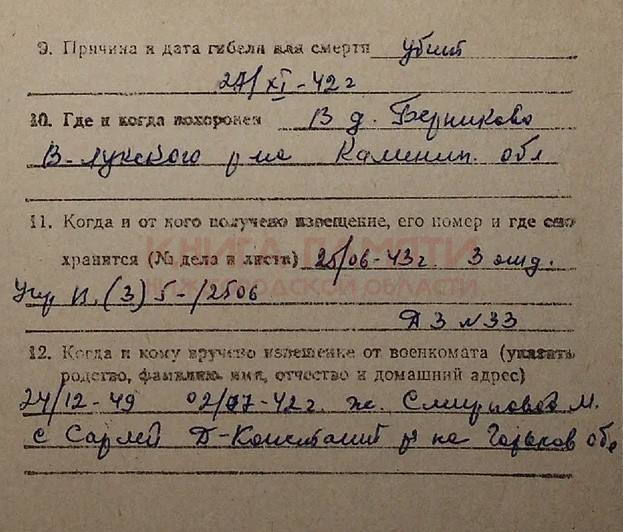 9. Причина и дата гибели или смерти убит
27/XI-42 г
10. Где и когда похоронен В д. Берниково
В-Лукского р-на Калинин. обл
11. Когда и от кого получено извещение, его номер и где оно
КНИГА ПАМЯТИ
хранится (№ дела и листа) 25/06-43 г 3 отд.
НИЖЕГОРОДСКОЙ ОБЛАСТИ
И. (3) 5-/2506
Д 3 N 33
12. Когда и кому вручено извещение от военкомата (указать
родство, фамилию, имя, отчество и домашний адрес)
24/12-49 02/07-42 г. ж. Смирновой М.
с Сарлей Д-Констант р-на Горьков обл